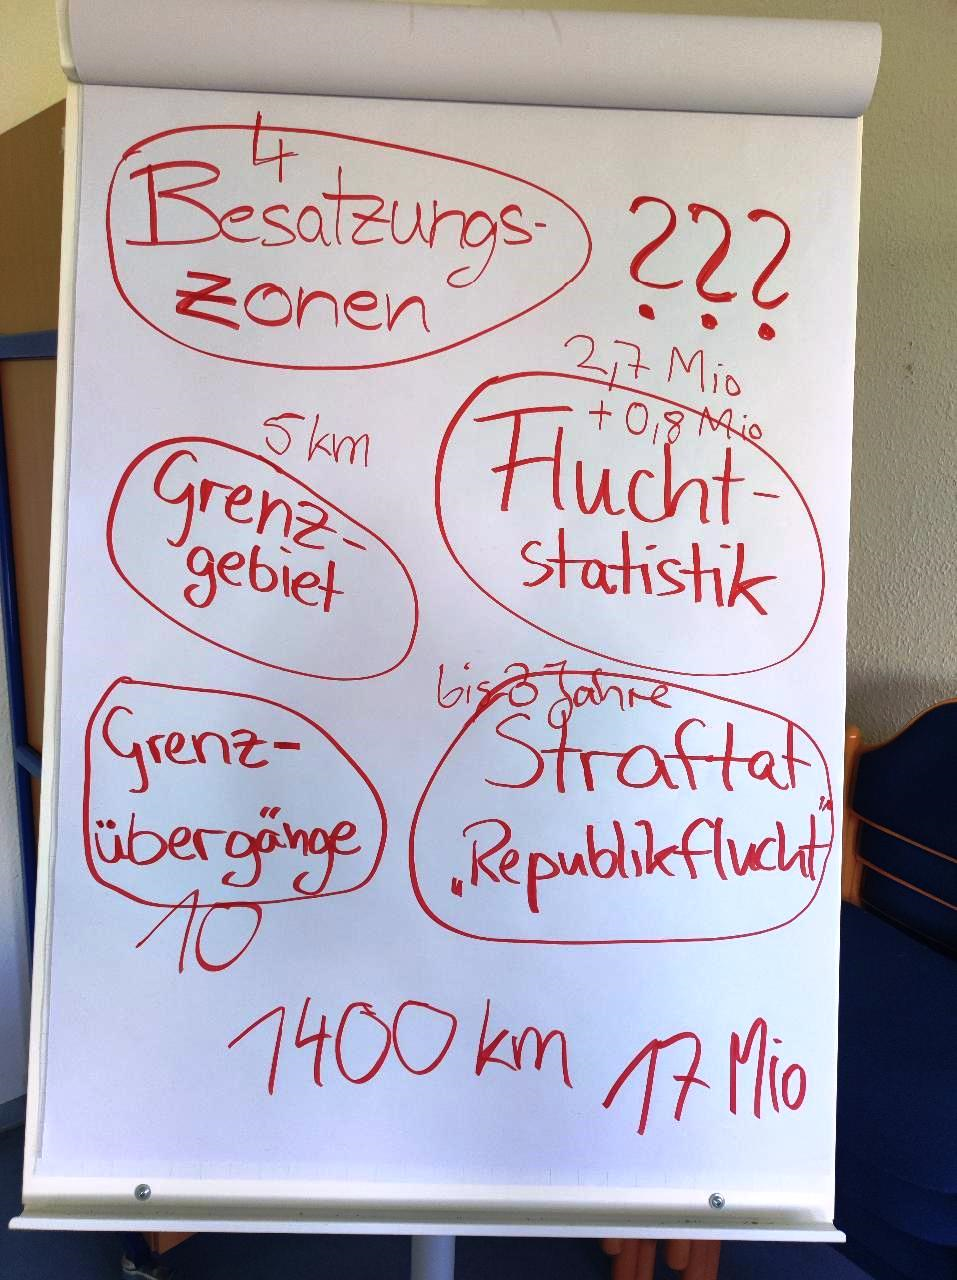 4
Besatzungs-
zonen
???
2,7 Mio
+ 0,8 Mio
Flucht-
statistik
5 km
Grenz-
gebiet
bis Jahre
Straftat
„Republikflucht"
Grenz-
übergänge
10
1400 km
17 Mio